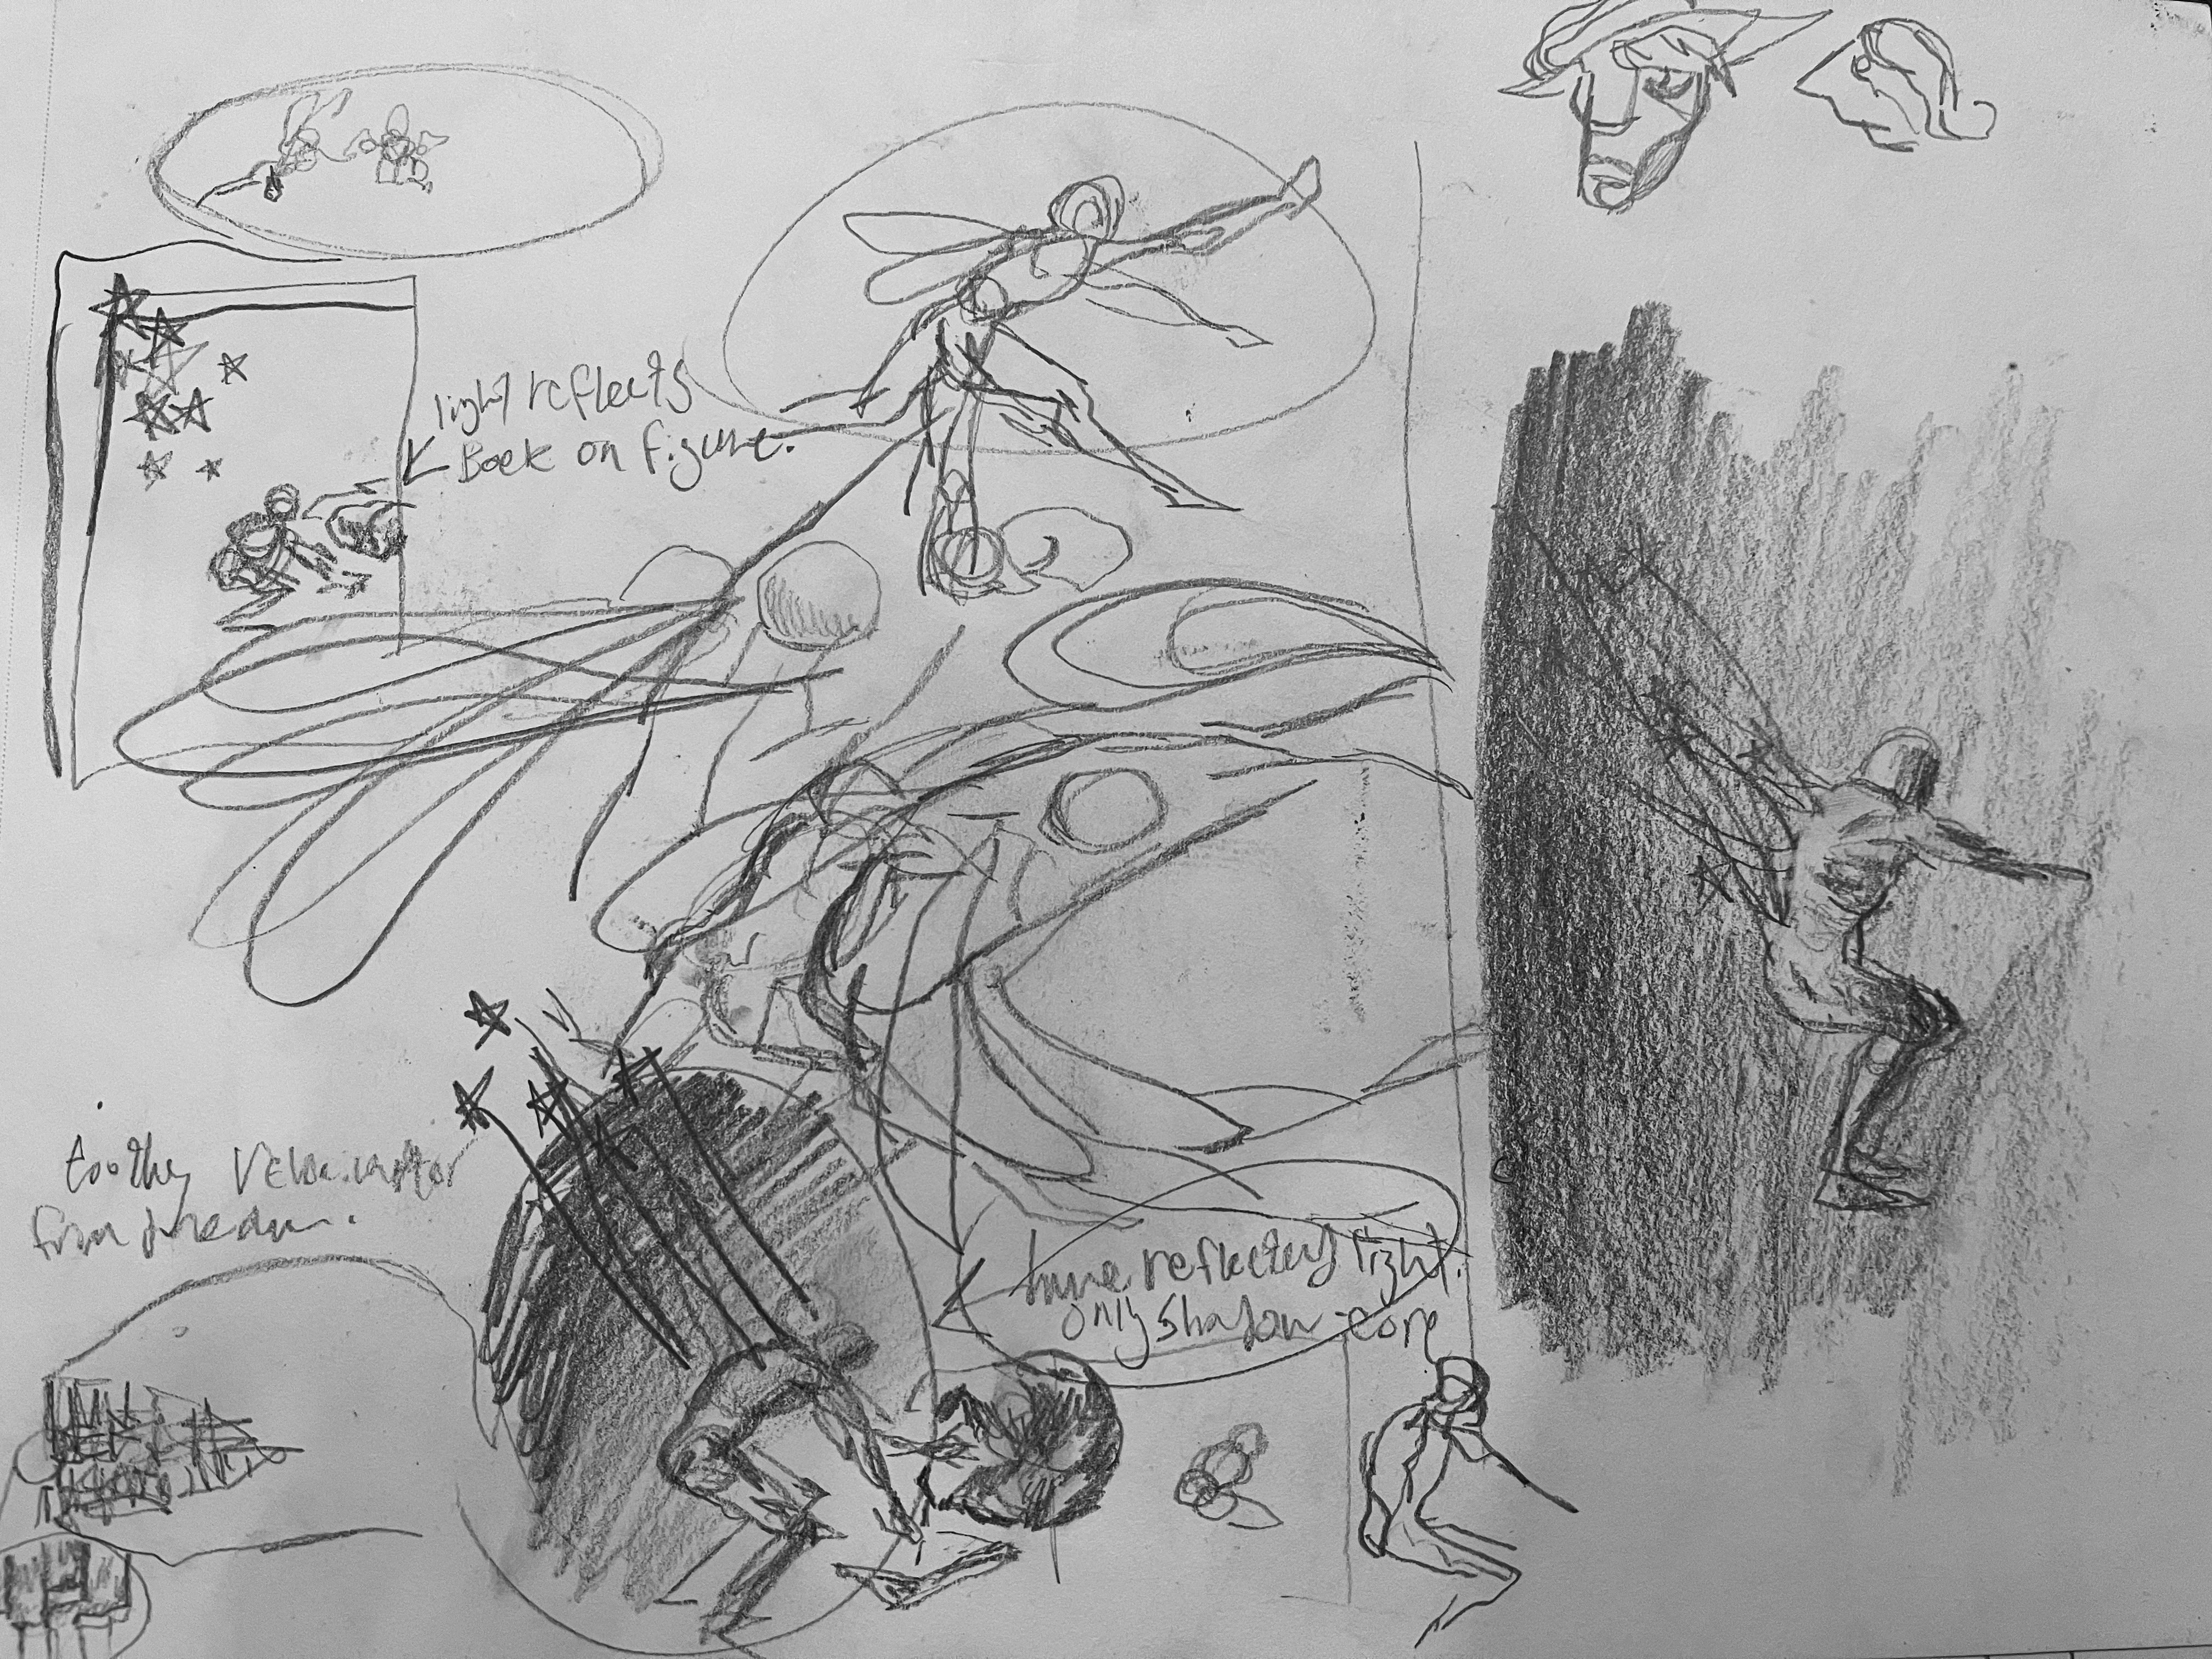 light reflects
Back on figure.
toothy Velociraptor
from dream.
have reflecting light.
only shadow core